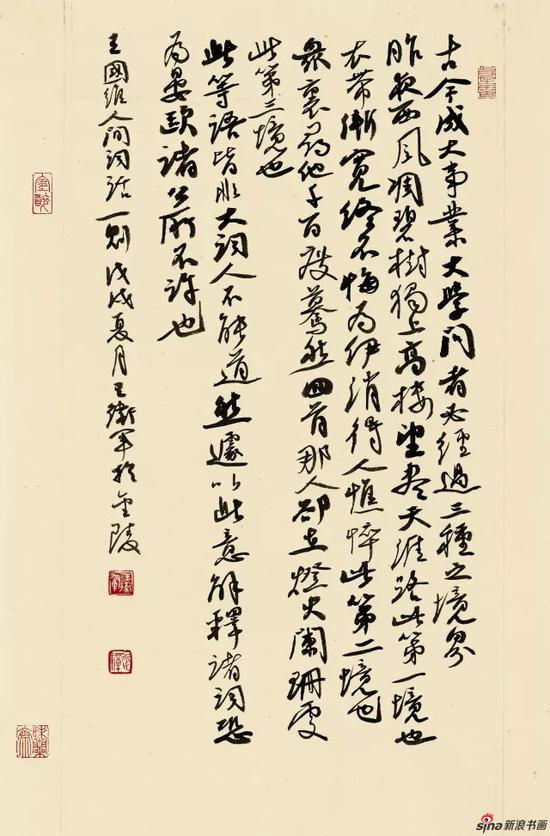 古今成大事業大學问者必經過三種之境界
昨夜西风凋碧樹獨上高楼望盡天涯路此第一境也
衣带漸寬終不悔为伊消得人憔悴此第二境也
衆裏尋他千百度驀然回首那人卻在燈火闌珊處
此第三境也
此等语皆非大詞人不能道然遽以此意解释诸词恐
为晏歐诸公所不许也
王國维人间词话一则戊戌夏月王衛军於金陵
sina新浪书画